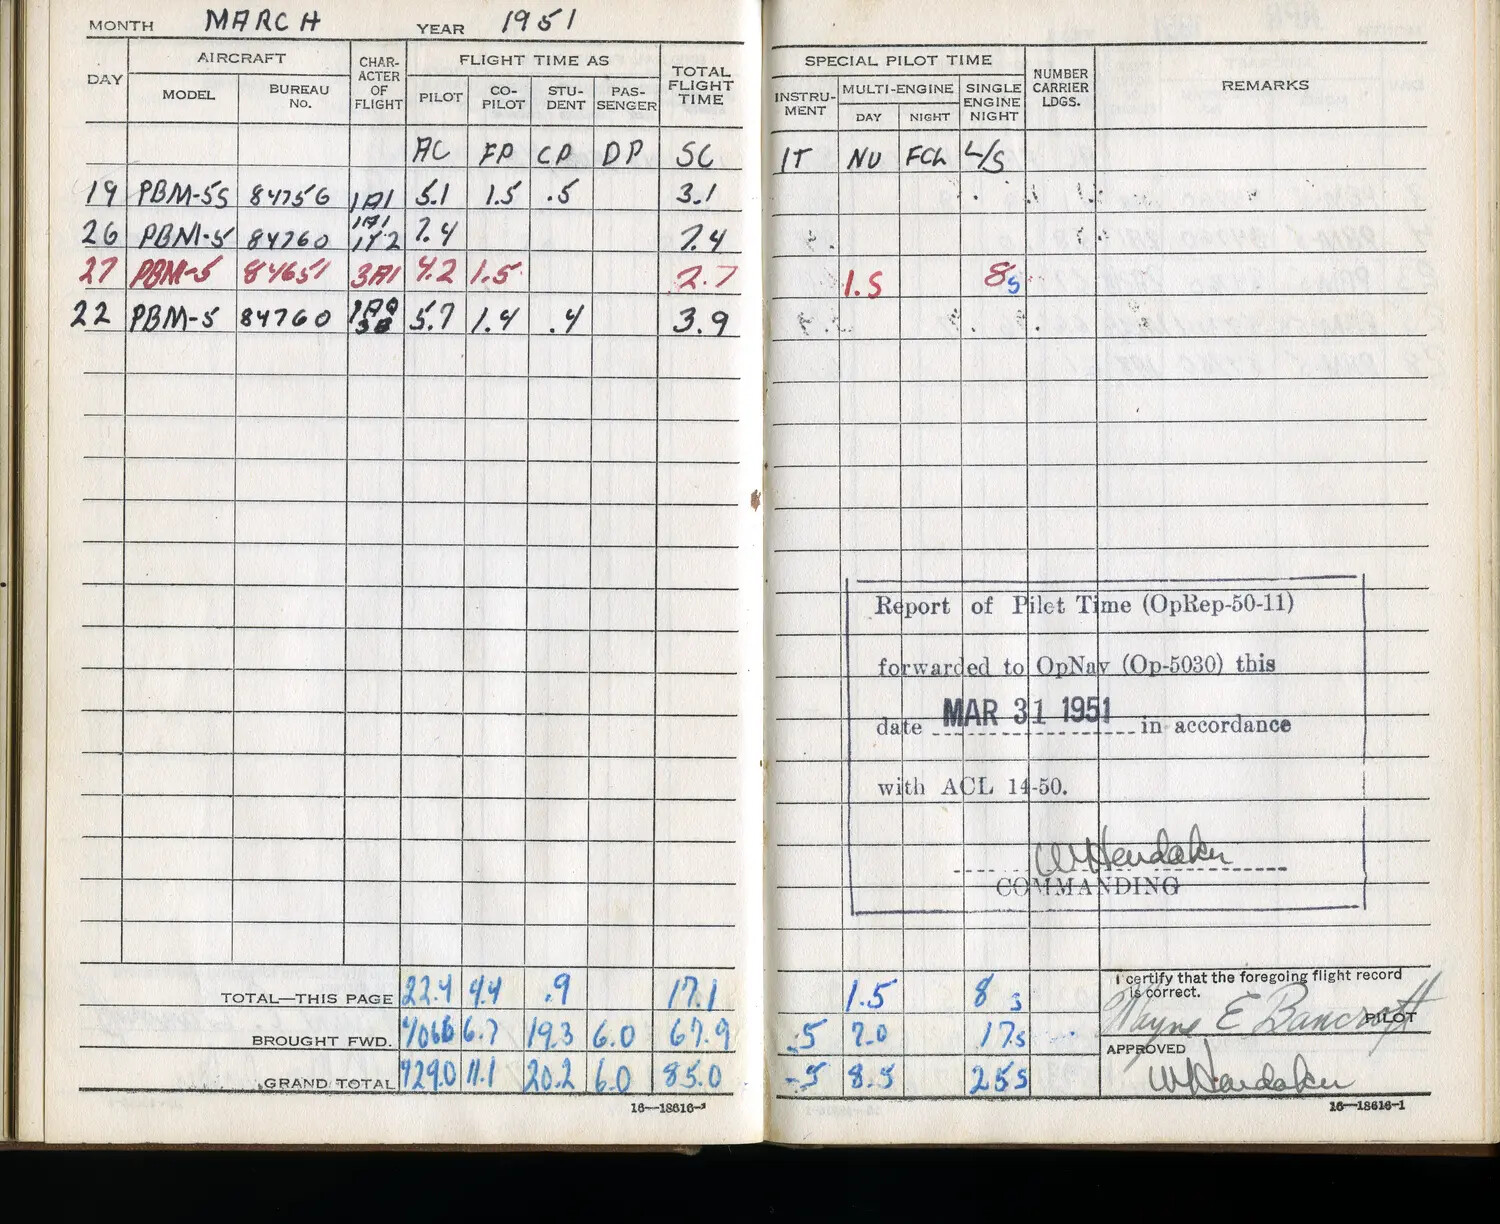 MONTH MARCH YEAR 1951
DAY AIRCRAFT MODEL BUREAU No. CHARACTER OF FLIGHT FLIGHT TIME AS PILOT CO-PILOT STUDENT PASSENGER TOTAL FLIGHT TIME SPECIAL PILOT TIME INSTRUMENT MULTI-ENGINE DAY NIGHT SINGLE ENGINE NIGHT NUMBER CARRIER LDGS. REMARKS
AC FP CP DP SC IT NU FCL L/S
19 PBM-5S 84756 1A1 5.1 1.5 .5 3.1
26 PBM-5 84760 1A1 7.4 7.4
27 PBM-5 84651 3A1 4.2 1.5 2.7 1.5 8s
22 PBM-5 84760 5.7 1.4 .4 3.9
Report of Pilot Time (OpRep-50-11)
forwarded to OpNav (Op-5030) this
date MAR 31 1951 in accordance
with ACL 14-50.
W Hendaker
COMMANDING
TOTAL—THIS PAGE 22.4 4.4 .9 17.1 1.5 8 s
BROUGHT FWD. 706.6 6.7 19.3 6.0 67.9 .5 7.0 17s
GRAND TOTAL 729.0 11.1 20.2 6.0 85.0 .5 8.5 25s
I certify that the foregoing flight record
is correct.
Wayne E Bancroft PILOT
APPROVED
W Hendaker
16—18616-1